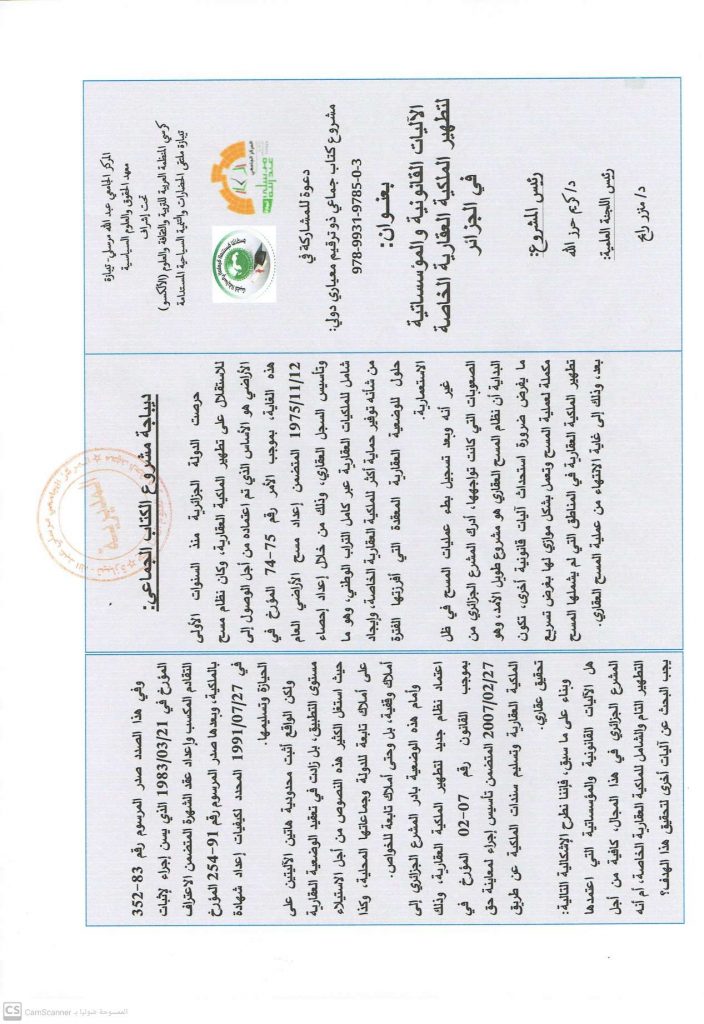 المركز الجامعي عبد الله مرسلي- تيبازة
معهد الحقوق والعلوم السياسية
تحت إشراف
كرسي المنظمة العربية للتربية والثقافة والعلوم (الألكسو)
تيبازة ملتقى الحضارات والتنمية السياحية المستدامة
دعوة للمشاركة في
مشروع كتاب جماعي ذو ترقيم معياري دولي:
978-9931-9785-0-3
بعنوان:
الآليات القانونية والمؤسساتية
لتطهير الملكية العقارية الخاصة
في الجزائر
رئيس المشروع:
د/ كريم حرز الله
رئيس اللجنة العلمية:
د/ منزر رابح
ديباجة مشروع الكتاب الجماعي:
حرصت الدولة الجزائرية منذ السنوات الأولى
للاستقلال على تطهير الملكية العقارية، وكان نظام مسح
الأراضي هو الأساس الذي تم اعتماده من أجل الوصول إلى
هذه الغاية، بموجب الأمر رقم 75-74 المؤرخ في
1975/11/12 المتضمن إعداد مسح الأراضي العام
وتأسيس السجل العقاري، وذلك من خلال إعداد إحصاء
شامل للملكيات العقارية عبر كامل التراب الوطني، وهو ما
من شأنه توفير حماية أكثر للملكية العقارية الخاصة، وإيجاد
حلول للوضعية العقارية المعقدة التي أفرزتها الفترة
الاستعمارية.
غير أنه وبعد تسجيل بطء عمليات المسح في ظل
الصعوبات التي كانت تواجهها، أدرك المشرع الجزائري من
البداية أن نظام المسح العقاري هو مشروع طويل الأمد، وهو
ما يفرض ضرورة استحداث آليات قانونية أخرى، تكون
مكملة لعملية المسح وتعمل بشكل موازي لها بغرض تسريع
تطهير الملكية العقارية في المناطق التي لم يشملها المسح
بعد، وذلك إلى غاية الانتهاء من عملية المسح العقاري.
وفي هذا الصدد صدر المرسوم رقم 83-352
المؤرخ في 1983/03/21 الذي يسن إجراء لإثبات
التقادم المكسب وإعداد عقد الشهرة المتضمن الاعتراف
بالملكية، وبعدها صدر المرسوم رقم 91-254 المؤرخ
في 1991/07/27 المحدد لكيفيات إعداد شهادة
الحيازة وتسليمها.
ولكن الواقع أثبت محدودية هاتين الآليتين على
مستوى التطبيق، بل زادت في تعقيد الوضعية العقارية
حيث استغل الكثير هذه النصوص من أجل الاستيلاء
على أملاك تابعة للدولة وجماعاتها المحلية، وكذا
أملاك وقفية، بل وحتى أملاك تابعة للخواص.
وأمام هذه الوضعية بادر المشرع الجزائري إلى
اعتماد نظام جديد لتطهير الملكية العقارية، وذلك
بموجب القانون رقم 07-02 المؤرخ في
2007/02/27 المتضمن تأسيس إجراء لمعاينة حق
الملكية العقارية وتسليم سندات الملكية عن طريق
تحقيق عقاري.
وبناء على ما سبق، فإننا نطرح الإشكالية التالية:
هل الآليات القانونية والمؤسساتية التي اعتمدها
المشرع الجزائري في هذا المجال، كافية من أجل
التطهير التام والشامل للملكية العقارية الخاصة، أم أنه
يجب البحث عن آليات أخرى لتحقيق هذا الهدف؟
CS CamScanner الممسوحة ضوئيا بـ